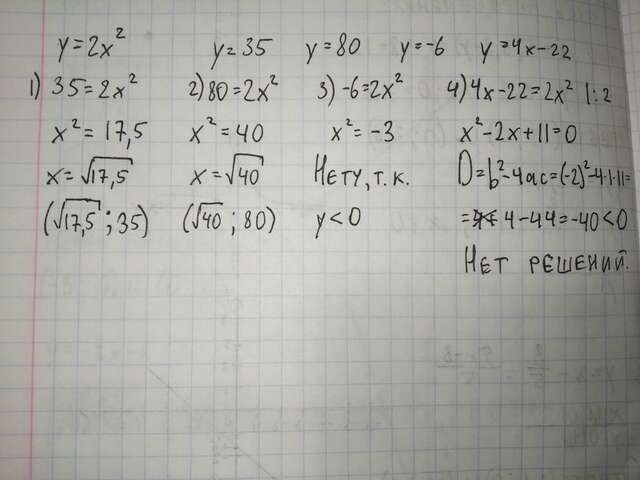 y=2x² y=35 y=80 y=-6 y=4x-22
1) 35=2x² 2) 80=2x² 3) -6=2x² 4) 4x-22=2x² |:2
x²=17,5 x²=40 x²=-3 x²-2x+11=0
x=√17,5 x=√40 Нету, т.к. D=b²-4ac=(-2)²-4·1·11=
(√17,5; 35) (√40; 80) y<0 =4-44=-40<0
Нет решений.